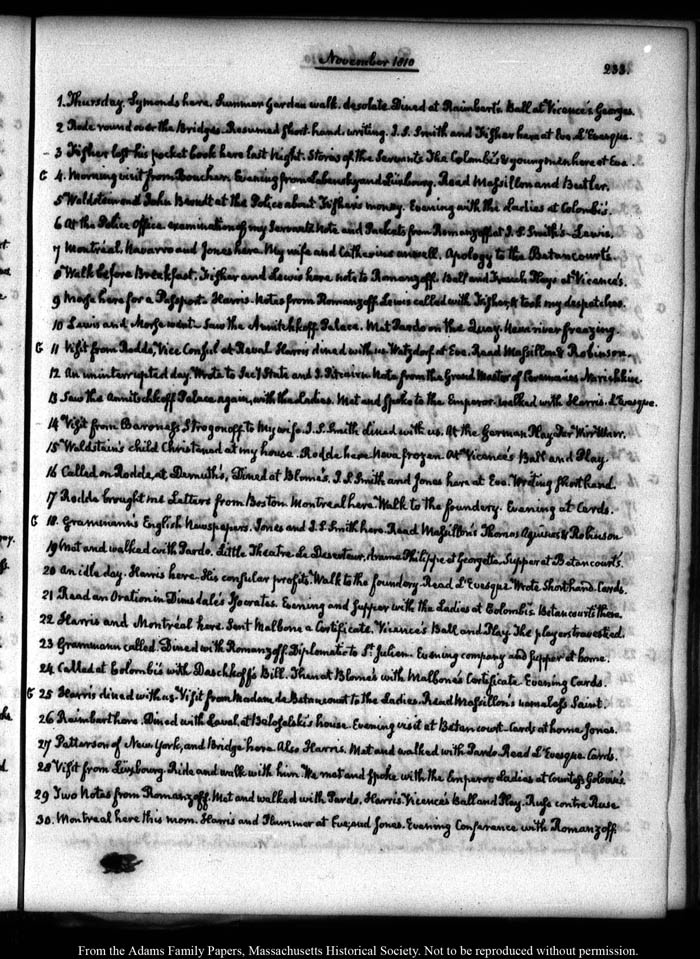 November 1810
233.
1. Thursday. Symonds here. Summer Garden walk. desolate. Dined at Raimbert's. Ball at Vicence's. Georges.
2 Rode round over the Bridges. Resumed short-hand writing. J.S. Smith and Fisher here at Eve. L'Evesque.
3 Fisher left his pocket book here last Night. Stories of the Servants. The Colombi's & young men here at Eve.
G 4. Morning visit from Bouchers, Evening from Labensky and Limbourg. Read Massillon and Butler.
5 Waldstein and John Brandt at the Police about Fisher's money. Evening with the Ladies at Colombi's.
6 At the Police Office. examination of my Servants. Note and Packets from Romanzoff at J.S. Smith's. Lewis.
7 Montréal, Navarro and Jones here. My wife and Catherine unwell. Apology to the Betancourt's.
8 Walk before Breakfast. Fisher and Lewis here. note to Romanzoff. Ball and French Plays at Vicence's.
9 Morse here for a Passport. Harris. Notes from Romanzoff. Lewis called with Fisher, & took my despatches.
10 Lewis and Morse went. Saw the Annitchkoff Palace. Met Pardo on the Quay. Neva river freezing.
G 11 Visit from Rodde, Vice Consul at Reval. Harris dined with us. Watzdorf at Eve. Read Massillon & Robinson.
12 An uninterrupted day. Wrote to Sec'y State and J. Pitcairn. Note from the Grand Master of Ceremonies Narishkin.
13 Saw the Annitchkoff Palace again, with the Ladies. Met and spoke to the Emperor. walked with Harris. L'Evesque.
14 Visit from Baroness Strogonoff to My wife. J.S. Smith dined with us. At the German Play. Der Wirrwarr.
15 Waldstein's child Christened at my house. Rodde here. Neva frozen. At Vicence's Ball and Play.
16 Called on Rodde, at Demuth's, Dined at Blome's. J.S. Smith and Jones here at Eve. Writing shorthand.
17 Rodde brought me Letters from Boston. Montreal here. Walk to the foundery. Evening at Cards.
G 18. Grammann's English Newspapers. Jones and J.S. Smith here. Read Massillon's Thomas Aquinas & Robinson
19 Met and walked with Pardo. Little Theatre. Le Deserteur, drama Philippe et Georgette. Supper at Betancourts.
20 An idle day. Harris here. His consular profits. Walk to the foundery. Read L'Evesque. Wrote Shorthand. Cards.
21 Read an Oration in Dinsdale's Isocrates. Evening and Supper with the Ladies at Colombi's. Betancourts there.
22 Harris and Montréal here. Sent Malbone a Certificate. Vicence's Ball and Play. The players travestied.
23 Gramann called. Dined with Romanzoff. Diplomatic to St. Julien. Evening company and Supper at home.
24 Called at Colombi's with Daschkoff's Bill. Then at Blome's with Malbone's Certificate. Evening Cards.
G 25 Harris dined with us. Visit from Madam de Betancourt to the Ladies. Read Massillon's nameless Saint.
26 Raimbert here. Dined with Laval, at Beloselski's house. Evening visit at Betancourt. Cards at home. Jones.
27 Patterson of New York, and Bridge here. Also Harris. Met and walked with Pardo. Read L'Evesque. Cards.
28 Visit from Limbourg. Ride and walk with him. We met and spoke with the Emperor. Ladies at Countess Golovin's
29 Two Notes from Romanzoff. Met and walked with Pardo. Harris. Vicence's Ball and Play. Ruse contre Ruse
30. Montreal here this morn. Harris and Plummer at Eve, and Jones. Evening Conference with Romanzoff.
From the Adams Family Papers, Massachusetts Historical Society. Not to be reproduced without permission.